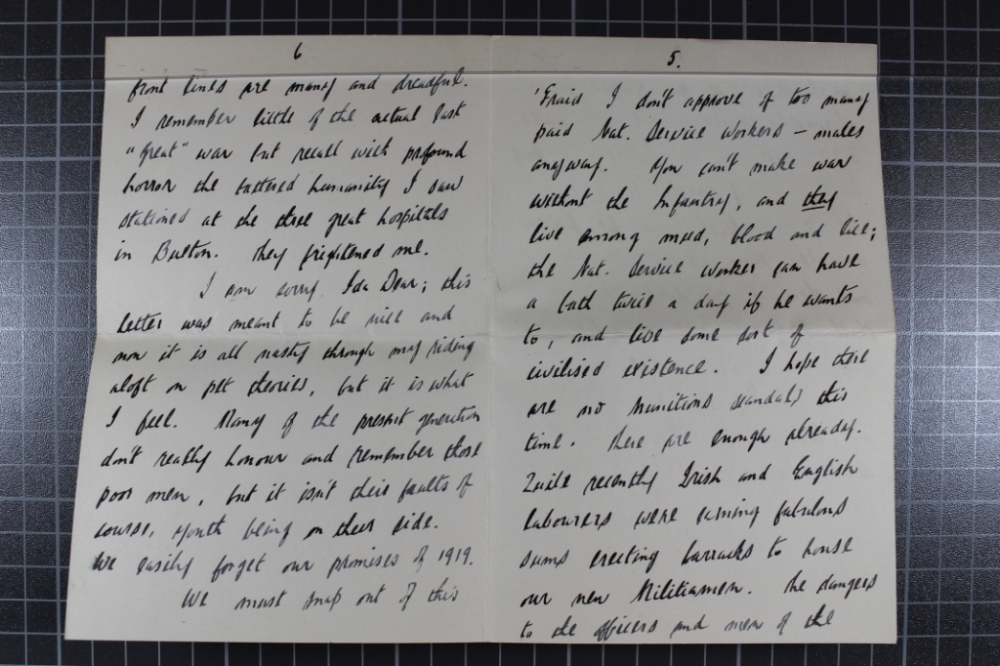 5.
'Fraid I don't approve of too many
paid Nat. Service workers – males
anyway. You can't make war
without the Infantry, and they
live among mud, blood and lice;
the Nat. Service worker can have
a bath twice a day if he wants
to, and live some sort of
civilised existence. I hope there
are no munitions scandals this
time. There are enough already.
Quite recently Irish and English
labourers were earning fabulous
sums erecting barracks to house
our new Militiamen. The dangers
to the officers and men of the
6
front lines are many and dreadful.
I remember little of the actual last
"Great" war but recall with profound
horror the humanity I saw
stationed at the three great hospitals
in They frightened me.
I am sorry Ida Dear; this
letter was meant to be nice and
now it is all nasty through my riding
aloft on pet theories, but it is what
I feel. Many of the present generation
don't really honour and remember those
poor men, but it isn't their faults of
course, youth being on their side.
We easily forget our promises of 1919.
We must snap out of this